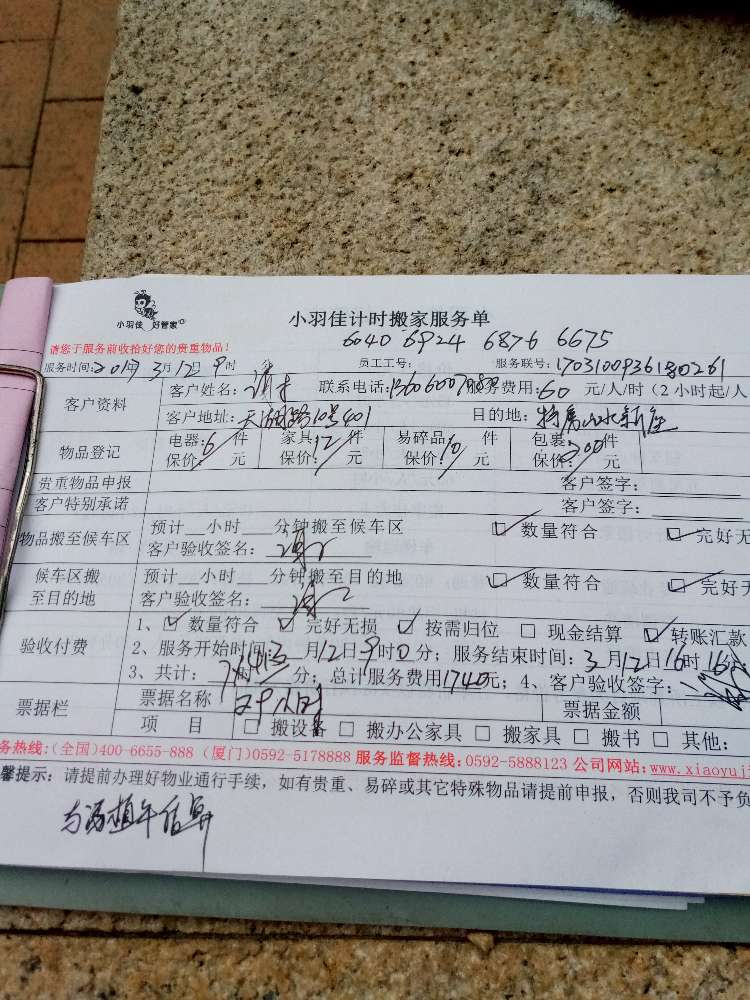 小羽佳 好管家
小羽佳计时搬家服务单
6040 6924 6876 6675
请您于服务前收拾好您的贵重物品!
服务时间: 3月12日9时 员工工号: 服务联号:
客户资料
客户姓名: 联系电话: 服务费用:60 元/人/时(2小时起/人
客户地址: 10号401 目的地:
物品登记
电器:6件 家具:12件 易碎品:10件 包装:200件
保价: 元 保价: 元 保价: 元 保价: 元
贵重物品申报 客户签字:
客户特别承诺 客户签字:
物品搬至候车区
预计__小时__分钟搬至候车区 数量符合 完好无
客户验收签名:
候车区搬至目的地
预计__小时__分钟搬至目的地 数量符合 完好无
客户验收签名:
验收付费
1、 数量符合 完好无损 按需归位 现金结算 转账汇款
2、服务开始时间: 月12日9时0分;服务结束时间:3月12日16时16
3、共计: 时 分;总计服务费用1740元;4、客户验收签字:
票据栏
票据名称 票据金额
项 目 搬设备 搬办公家具 搬家具 搬书 其他:
务热线:(全国)400-6655-888 (厦门)0592-5178888 服务监督热线:0592-5888123 公司网站:www.xiaoyuj
馨提示:请提前办理好物业通行手续,如有贵重、易碎或其它特殊物品请提前申报,否则我司不予负